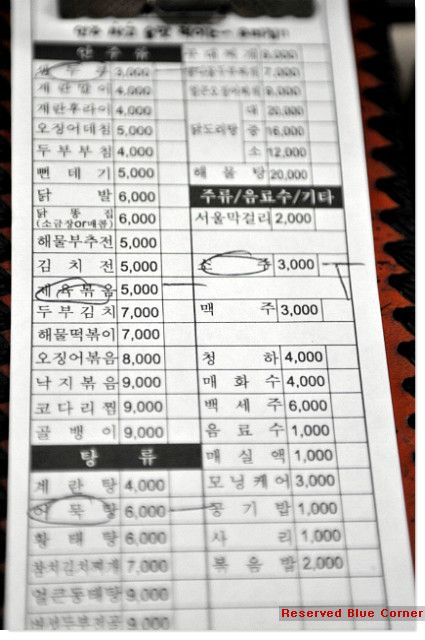 안 주 류
생 두 부 3,000
계 란 말 이 4,000
계란후라이 4,000
오징어데침 5,000
두 부 부 침 4,000
뻔 데 기 5,000
닭 발 6,000
닭 똥 집
(소금장or매콤) 6,000
해물부추전 5,000
김 치 전 5,000
제 육 볶 음 5,000
두 부 김 치 7,000
해물떡볶이 7,000
오징어볶음 8,000
낙 지 볶 음 9,000
코 다 리 찜 9,000
골 뱅 이 9,000
탕 류
계 란 탕 4,000
어 묵 탕 6,000
황 태 탕 6,000
참치김치찌개 7,000
얼큰동태탕 9,000
버섯두부전골 9,000
6,000
7,000
8,000
닭도리탕 대 20,000
중 16,000
소 12,000
해 물 탕 20,000
주류/음료수/기타
서울막걸리 2,000
소 주 3,000
맥 주 3,000
청 하 4,000
매 화 수 4,000
백 세 주 6,000
음 료 수 1,000
매 실 액 1,000
모닝케어 3,000
공 기 밥 1,000
사 리 1,000
볶 음 밥 2,000
Reserved Blue Corner